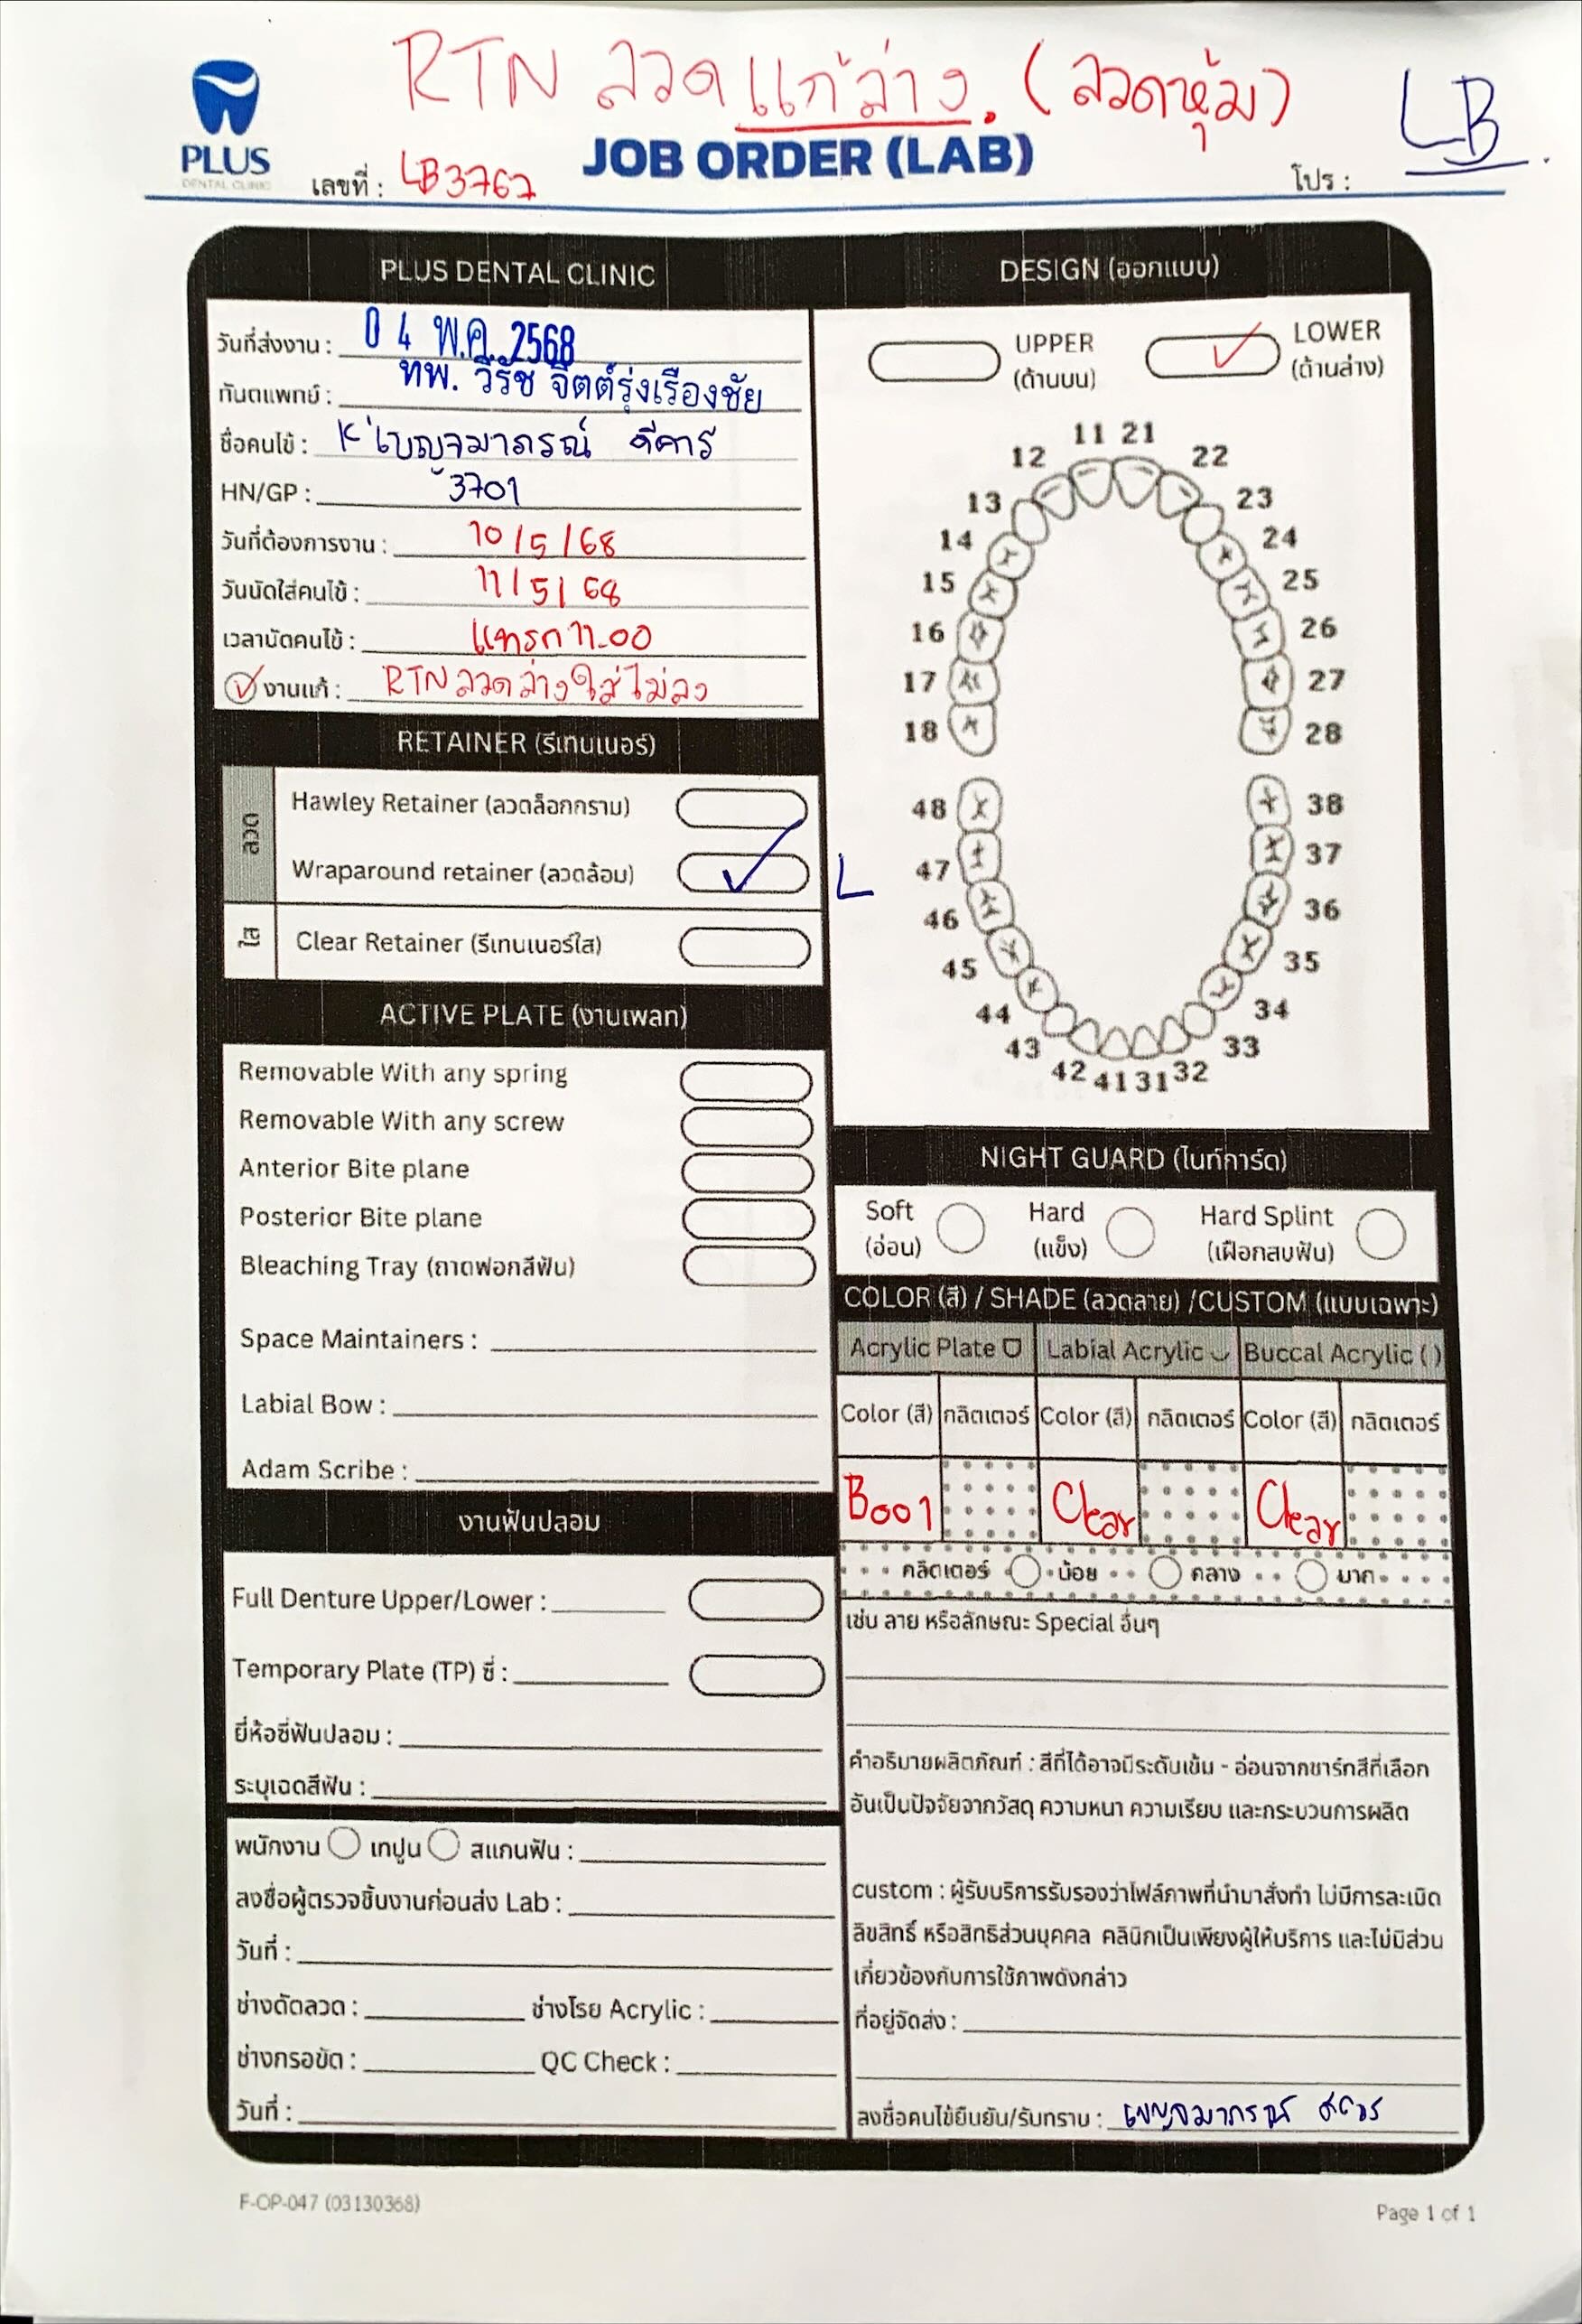 RTN ลวดแก้ล่าง. (ลวดหุ้ม)
LB
PLUS
DENTAL CLINIC
JOB ORDER (LAB)
เลขที่ : LB3767
โปร :
PLUS DENTAL CLINIC
วันที่ส่งงาน : 04 พ.ค. 2568
ทันตแพทย์ : ทพ. วีรัช จิตต์รุ่งเรืองชัย
ชื่อคนไข้ : K'เบญจมาภรณ์ ดีคาร์
HN/GP : 3701
วันที่ต้องการงาน : 10/5/68
วันนัดใส่คนไข้ : 11/5/68
เวลานัดคนไข้ : แทรก 11.00
งานแก้ : RTN ลวดล่างใส่ไม่ลง
RETAINER (รีเทนเนอร์)
ลวด
Hawley Retainer (ลวดล็อกกราม)
Wraparound retainer (ลวดล้อม) L
ใส
Clear Retainer (รีเทนเนอร์ใส)
ACTIVE PLATE (งานเพลท)
Removable With any spring
Removable With any screw
Anterior Bite plane
Posterior Bite plane
Bleaching Tray (ถาดฟอกสีฟัน)
Space Maintainers :
Labial Bow :
Adam Scribe :
งานฟันปลอม
Full Denture Upper/Lower :
Temporary Plate (TP) ซี่ :
ยี่ห้อซี่ฟันปลอม :
ระบุเฉดสีฟัน :
พนักงาน เทปูน สแกนฟัน :
ลงชื่อผู้ตรวจชิ้นงานก่อนส่ง Lab :
วันที่ :
ช่างดัดลวด : ช่างโรย Acrylic :
ช่างกรอขัด : QC Check :
วันที่ :
DESIGN (ออกแบบ)
UPPER LOWER
(ด้านบน) (ด้านล่าง)
11 21
12 22
13 23
14 24
15 25
16 26
17 27
18 28
48 38
47 37
46 36
45 35
44 34
43 33
42 41 31 32
NIGHT GUARD (ไนท์การ์ด)
Soft Hard Hard Splint
(อ่อน) (แข็ง) (เฝือกสบฟัน)
COLOR (สี) / SHADE (ลวดลาย) /CUSTOM (แบบเฉพาะ)
Acrylic Plate Labial Acrylic Buccal Acrylic ( )
Color (สี) กลิตเตอร์ Color (สี) กลิตเตอร์ Color (สี) กลิตเตอร์
B001 Clear Clear
กลิตเตอร์ น้อย กลาง มาก
เช่น ลาย หรือลักษณะ Special อื่นๆ
คำอธิบายผลิตภัณฑ์ : สีที่ได้อาจมีระดับเข้ม - อ่อนจากชาร์ทสีที่เลือก
อันเป็นปัจจัยจากวัสดุ ความหนา ความเรียบ และกระบวนการผลิต
custom : ผู้รับบริการรับรองว่าไฟล์ภาพที่นำมาสั่งทำ ไม่มีการละเมิด
ลิขสิทธิ์ หรือสิทธิส่วนบุคคล คลินิกเป็นเพียงผู้ให้บริการ และไม่มีส่วน
เกี่ยวข้องกับการใช้ภาพดังกล่าว
ที่อยู่จัดส่ง :
ลงชื่อคนไข้ยืนยัน/รับทราบ : เบญจมาภรณ์
F-OP-047 (03130368)
Page 1 of 1